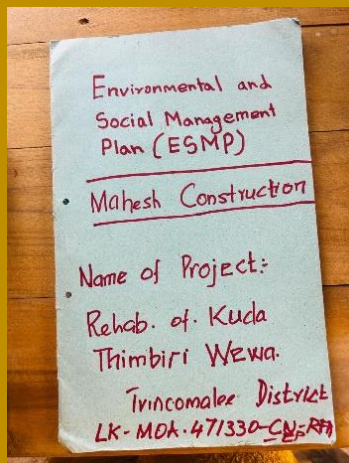 Environmental and
Social Management
Plan (ESMP)
Mahesh Construction
Name of Project:-
Rehab. of. Kuda
Thimbiri Wewa.
Trincomalee District
LK-MOA-471330-CW-RFB